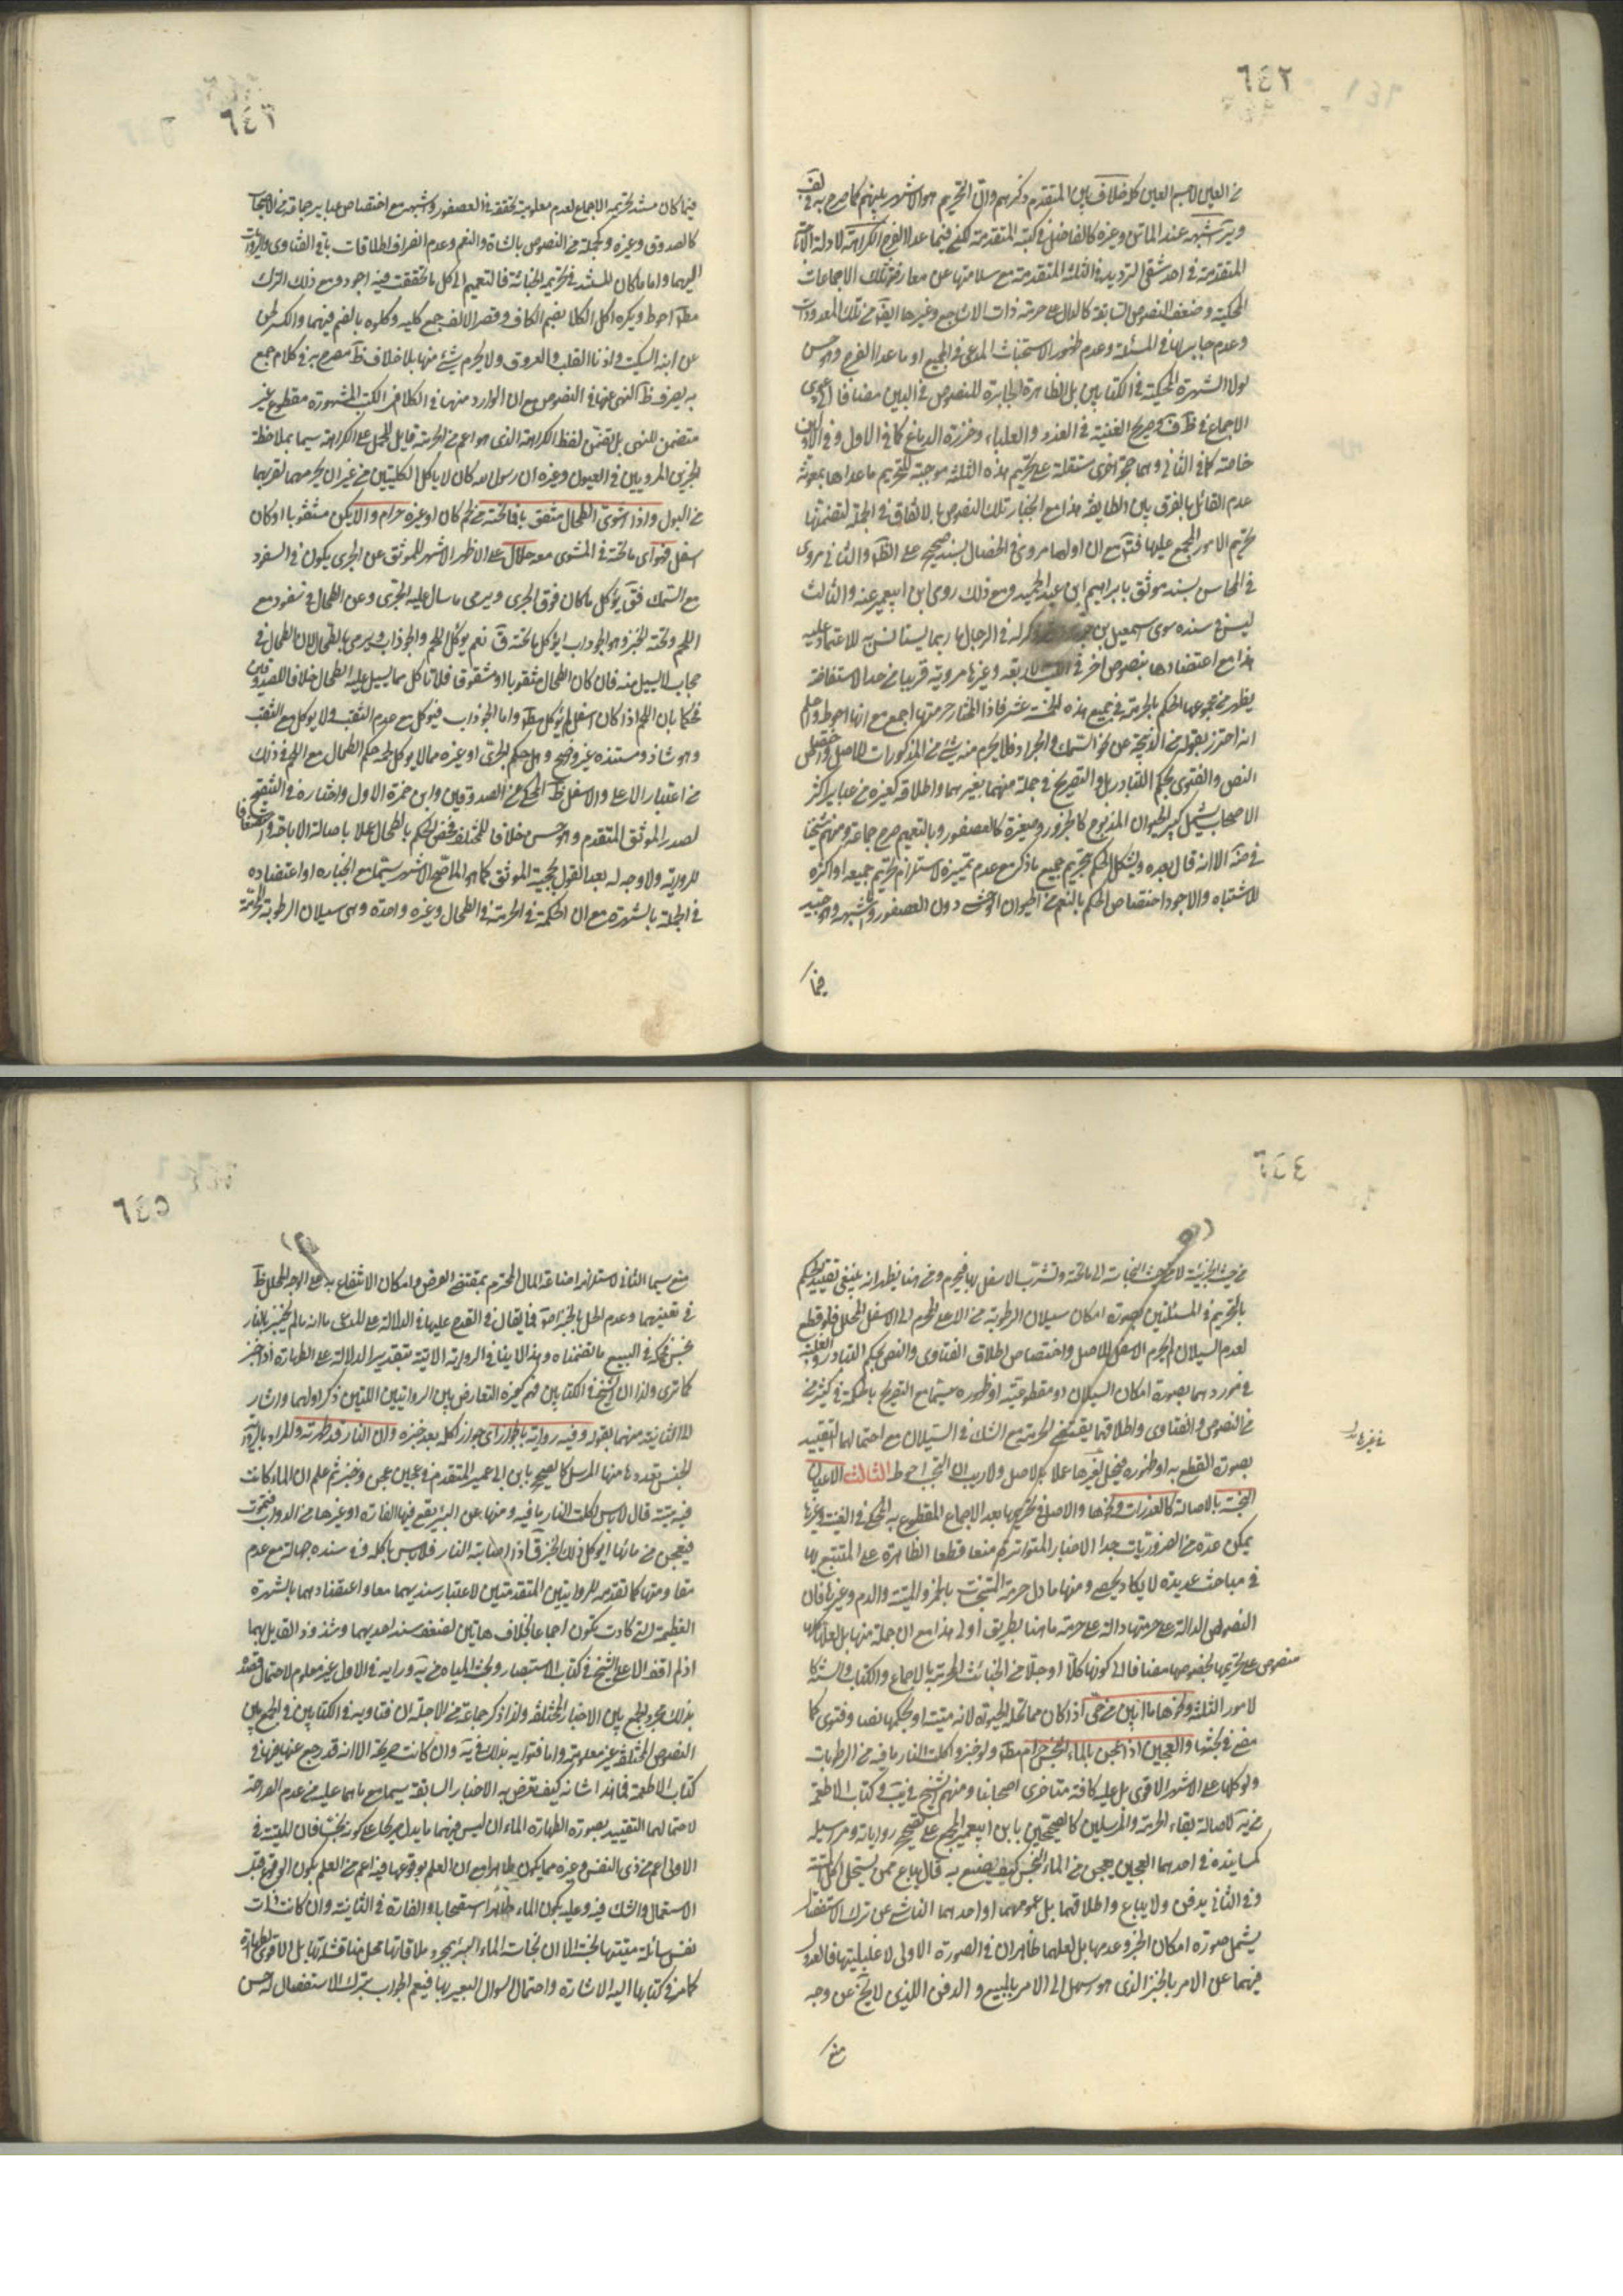 ٦٤٢
المتقدمة في احد شقي الترديد في الثلثة المتقدمة مع سلامتها عن معارضة تلك الاجماعات
المحكية وضعف النصوص السابقة كالدال على حرمة ذات الاشاجع وغيرها ايضا من تلك المعدودات
وعدم جابر لها في المسئلة وعدم ظهور الاستخباث المدعى في الجميع او ما عدا الفرج وهو حسن
لولا الشهرة المحكية في الكتابين بل الظاهرة الجابرة للنصوص في البين مضافا الى دعوى
خاصة كما في الثاني وهما حجة اخرى مستقلة على تحريم هذه الثلثة موجبة لتحريم ما عداها بمعونة
عدم القائل بالفرق بين الطايفة هذا مع انجبار تلك النصوص بالاتفاق في الجملة لتضمنها
تحريم الامور المجمع عليها فتوى مع ان اولها مروي في الخصال بسند صحيح على الظ والثاني مروي
في المحاسن بسند موثق بابراهيم بن عبد الحميد ومع ذلك روى ابن ابي عمير عنه والثالث
ليس في سنده سوى اسمعيل بن
هذا مع اعتضادها بنصوص اخر في وغيرها مروية قريبا من حد الاستفاضة
يظهر من مجموعها الحكم بالحرمة في جميع هذه الخمسة عشر فاذا المختار حرمتها اجمع مع انها احوط واعلم
انه احترز بقوله من الذبيحة عن نحو السمك والجراد فلا يحرم منه شئ من المذكورات للاصل واختصاص
النص والفتوى بحكم التبادر بل والتصريح في جملة منهما بغيرهما واطلاقه كغيره من عباير اكثر
الاصحاب يشمل كبير الحيوان المذبوح كالجزور وصغيره كالعصفور وبالتعميم صرح جماعة ومنهم شيخنا
في ضة الا انه قال بعده ويشكل الحكم بتحريم جميع ما ذكر مع عدم تمييزه لاستلزام تحريم جميعه او اكثره
للاشتباه والاجود اختصاص الحكم بالنعم من الحيوان الوحشي دون العصفور وما شبهه وهو جيد
فيما
٦٤٣
فيما كان مستند تحريمه الاجماع لعدم معلومية تحققه في العصفور وشبهه مع اختصاص عباير جماعة من الاصحاب
كالصدوق وغيره وكجملة من النصوص بالشاة والنعم وعدم انصراف اطلاقات باقي الفتاوى والروايات
اليهما واما ما كان المستند في تحريمه الخباثة فالتعميم الى كل ما تحققت فيه اجود ومع ذلك الترك
مط احوط ويكره اكل الكلا بضم الكاف وقصر الالف جمع كلية وكلوه بالضم فيهما والكسر لحن
عن ابن السكيت واذنا القلب والعروق ولا يحرم شئ منها بلا خلاف ظ مصرح به في كلام جمع
به يصرف ظ النهي عنها في النصوص مع ان الوارد منها في الكلا في الكتب المشهورة مقطوع غير
متضمن للنهي بل تضمن لفظ الكراهة الذي هو اعم من الحرمة قابل للحمل على الكراهة سيما بملاحظة
الخبرين المرويين في العيون وغيره ان رسول الله كان لا ياكل الكليتين من غير ان يحرمهما لقربهما
من البول واذا شوى الطحال مثقوبا فما تحته من لحم كان او غيره حرام والا يكن مثقوبا او كان
اسفل فهو اى ما تحته في المشوى معه حلال على الاظهر الاشهر للموثق عن الجرى يكون في السفود
مع السمك فق يؤكل ما كان فوق الجرى ويرمى ما سال عليه الجرى وعن الطحال في سفود مع
اللحم وتحته الخبز وهو الجوذاب ايؤكل ما تحته ق نعم يوكل اللحم والجوذاب ويرمى بالطحال لان الطحال في
حجاب لا يسيل منه فان كان الطحال مثقوبا او مشقوقا فلا تاكل مما يسيل عليه الطحال خلافا للصدوقين
فحكما بان اللحم اذا كان اسفل لم يؤكل مط واما الجوذاب فيؤكل مع عدم الثقب ولا يؤكل مع الثقب
وهو شاذ ومستنده غير واضح وهل حكم الجرى او غيره مما لا يوكل لحمه حكم الطحال مع اللحم في ذلك
من اعتبار الاعلى والاسفل ظ المحكي عن الصدوقين وابن حمزة الاول واختاره في التنقيح
لصدر الموثق المتقدم وهو حسن خلافا للمختلف فخص الحكم بالطحال عملا باصالة الاباحة واستضعافا
للرواية ولا وجه له بعد القول بحجية الموثق كما هو الاصح الاشهر سيما مع انجباره او اعتضاده
في الجملة بالشهرة مع ان الحكمة في الحرمة في الطحال وغيره واحدة وهي سيلان الرطوبة المحرمة
٦٤٤
بالتحريم في المسئلتين بصورة امكان سيلان الرطوبة من الاعلى المحرم الى الاسفل المحلل فلو قطع
لعدم السيلان لم يحرم الاسفل للاصل واختصاص اطلاق الفتاوى والنص بحكم التبادر والغلبة
في موردهما بصورة امكان السيلان او مقطوعيته او ظهوره سيما مع التصريح بالحكمة في كثير من
من النصوص والفتاوى واطلاقهما يقتضي الحرمة مع الشك في السيلان مع احتمالهما التقييد
في غيرها بدل
بصورة القطع به او ظهوره فيحل بغيرها عملا بالاصل ولا ريب ان التجنب احوط الثالث الاعيان
النجسة بالاصالة كالعذرات ونحوها والاصل في تحريمها بعد الاجماع المقطوع به المحكي في الغنية وغيرها
يمكن عده من الضروريات جدا الاخبار المتواترة معنا قطعا الظاهرة على المتتبع لها
في مباحث عديدة لا يكاد يحصى ومنها ما دل حرمة المتنجس بالخمر والميتة والدم وغيرها فان
النصوص الدالة على حرمتها دالة على حرمة ما هنا بطريق اولى هذا مع ان جملة منها بل لعلها كلها
منصوص على تحريمها بخصوصها مضافا الى كونها كلا او جلا من الخبائث المحرمة بالاجماع والكتاب والسنة
لامور الثلثة ونحوها ما ابين من حى اذا كان مما تحله الحيوة لانه ميتة او بحكمها نصا وفتوى كما
مضى في بحثها والعجين اذا عجن بالماء النجس حرام مط ولو خبز واكلت النار ما فيه من الرطوبات
ولو كلها على الاشهر الاقوى بل عليه كافة متاخرى اصحابنا ومنهم الشيخ في يب وفي كتاب الاطعمة
من ية لاصالة بقاء الحرمة والمرسلين كالصحيحين بابن ابي عمير المجمع على تصحيح رواياته ومراسيله
كمسانيده في احدهما العجين يعجن من الماء النجس كيف يصنع به قال يباع ممن يستحل اكل الميتة
وفي الثاني يدفن ولا يباع واطلاقهما بل عمومهما او احدهما الناشي عن ترك الاستفصال
يشمل صورة امكان الخبز وعدمها بل لعلهما ظاهران في الصورة الاولى لاغلبيتها فالعدول
فيهما عن الامر بالخبز الذي هو سهل الى الامر بالبيع والدفن اللذين لا يخ عن وجه
منع
٦٤٥
منع سيما الثاني لاستلزامه اضاعة المال المحترم بمقتضى الفرض وامكان الانتفاع به على الوجه المحلل ظ
في تعينهما وعدم الحل بالخبز اصلا فما يقال في القدح عليها في الدلالة على المدعى بانه ما لم يخبز بالنار
كما ترى ولذا ان الشيخ في الكتابين فهم كغيره التعارض بين الروايتين اللتين ذكر اولهما واشار
الى الثانية منهما بقوله وفيه رواية بالجواز اى جواز اكله بعد خبزه وان النار قد طهرته والمراد بالرواية
الجنس لتعددها منها المرسل كالصحيح بابن ابي عمير المتقدم في عجين عجن وخبز ثم علم ان الماء كانت
فيه ميتة قال لا باس اكلت النار ما فيه ومنها عن البئر يقع فيها الفارة او غيرها من الدواب فتموت
فيعجن من مائها ايوكل ذلك الخبز ق اذا اصابته النار فلا باس باكله وفي سنده جهالة مع عدم
مقاومتها كما تقدمه للروايتين المتقدمتين لاعتبار سنديهما معا واعتضادهما بالشهرة
العظيمة التي كادت تكون اجماعا بخلاف هاتين لضعف سند احديهما وشذوذ القايل بهما
اذ لم اقف الا على الشيخ في كتاب الاستبصار وبحث المياه من ية ورايه في الاول غير معلوم لاحتمال قصده
بذلك مجرد الجمع بين الاخبار المختلفة ولذا ذكر جماعة من الاجلة ان فتاويه في الكتابين في الجمع بين
النصوص المختلفة غير معلومة واما فتواه بذلك في ية وان كانت صريحة الا انه قد رجع عنها فيها في
كتاب الاطعمة فما هذا شانه كيف تعرض به الاخبار السابقة سيما مع ما هما عليه من عدم الصراحة
لاحتمالهما التقييد بصورة الطهارة الماء اذ ليس فيهما ما يدل صريحا على كونه نجسا فان الميتة في
الاولى اعم من ذى النفس وغيره مما يكون طاهرا مع ان العلم بوقوعها فيه اعم من العلم بكون الوقوع قبل
الاستعمال والشك فيه وعليه يكون الماء طاهرا استصحابا والفارة في الثانية وان كانت ذات
نفس سائلة ميتتها نجسة الا ان نجاسة الماء البئر بمجرد ملاقاتها محل مناقشة بل الاقوى الطهارة
كما مر في كتابها اليه الاشارة واحتمال السوال التغير بها فيعم الجواب بترك الاستفصال له حسن